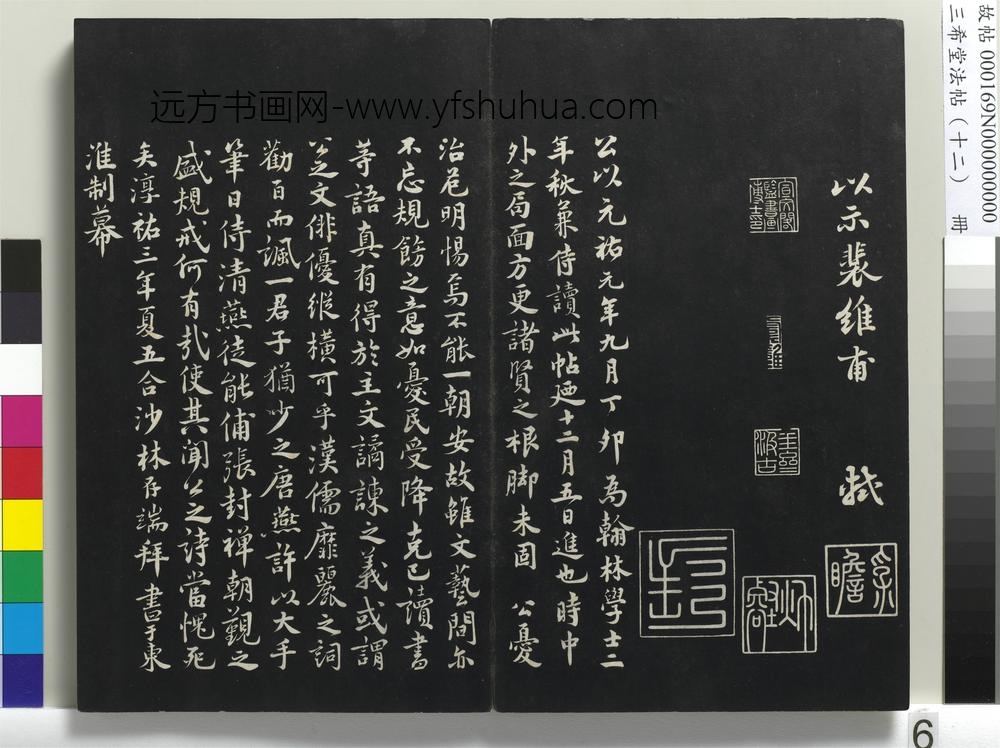 故帖 000169N000000000
三希堂法帖（十二） 册
远方书画网-www.yfshuhua.com
以示裴維甫 軾
宣文閣
監書畫
博士印
汲古
子瞻
公以元祐元年九月丁卯為翰林學士二
年秋兼侍讀此帖廼十二月五日進也時中
外之局面方更諸賢之根脚未固 公憂
治危明惕焉不能一朝安故雖文藝間亦
不忘規飭之意如憂民受降克己讀書
等語真有得於主文譎諫之義或謂
公之文俳優縱橫可乎漢儒靡麗之詞
勸百而諷一君子猶少之唐燕許以大手
筆日侍清燕徒能備張封禪朝覲之
盛規戒何有哉使其聞公之詩當愧死
矣淳祐三年夏五合沙林存端拜書于東
淮制幕
6